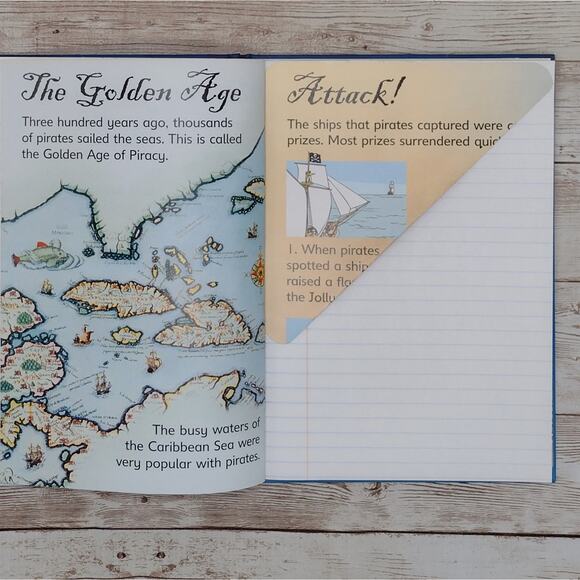 The Golden Age
Three hundred years ago, thousands
of pirates sailed the seas. This is called
the Golden Age of Piracy.
The busy waters of
the Caribbean Sea were
very popular with pirates.
Attack!
The ships that pirates captured were
prizes. Most prizes surrendered
1. When pirates
spotted a ship
raised a
the Jolly